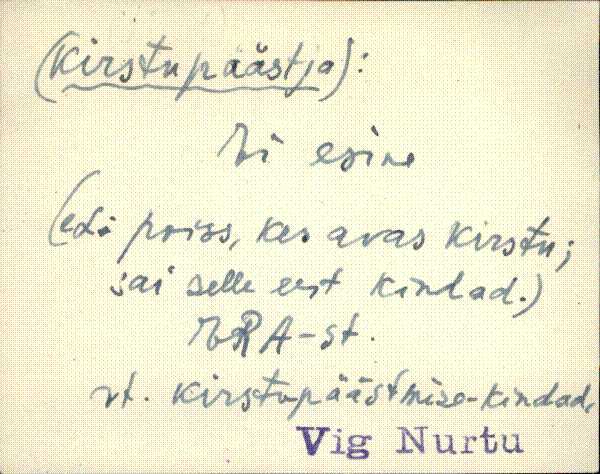 (Kirstupäästja):
Ei esine
poiss, kes avas kirstu;
sai selle eest kindad.)
ERA-st.
vt. kirstupäästmise-kindad.
Vig Nurtu